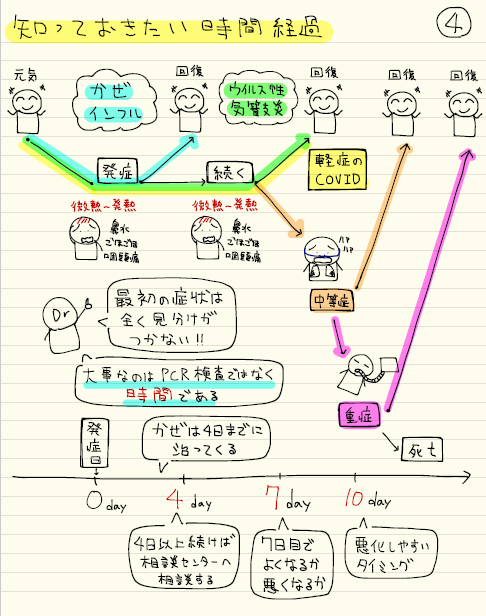 知っておきたい時間経過
④
元気
かぜ
インフル
回復
ウイルス性
気管支炎
回復
回復
回復
発症
続く
軽症の
COVID
微熱～発熱
鼻水
ごほごほ
咽頭痛
微熱～発熱
鼻水
ごほごほ
咽頭痛
ハァ
ハァ
中等症
Dr
最初の症状は
全く見分けが
つかない!!
大事なのはPCR検査ではなく
時間である
重症
死亡
発症日
かぜは4日までに
治ってくる
0 day
4 day
7 day
10 day
4日以上続けば
相談センターへ
相談する
7日目で
よくなるか
悪くなるか
悪化しやすい
タイミング